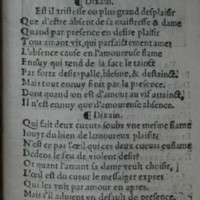 ¶ Dixain.
Est il tristesse ou plus grand desplaisir
Que d'estre absent de sa maistresse & dame
Quand par presence en desire plaisir
Tout amant vit, qui parfaictement ame?
L'absence cause en l'amoureuse flame
Ennuy qui rend de la face le tainct
Par forza desir palle, blesme, & destainct,
Mais tout ennuy finit par la presence.
Dont quand on est d'amour au vif attainct,
Il n'est ennuy que d'amoureuse absence.
¶ Dixain.
Qui fait deux cueurs soubz vne mesme flame
Iouyr du bien de l'amoureux plaisir
N'est ce pas l'œil qui ces deux cueurs enflame
Dedens le feu de violent desir
Or quant l'amant sa dame veult choisir,
L'œil est du cueur le messaiger expres
Qui les vnit par amour en apres.
Mais s'il aduient en default de presence